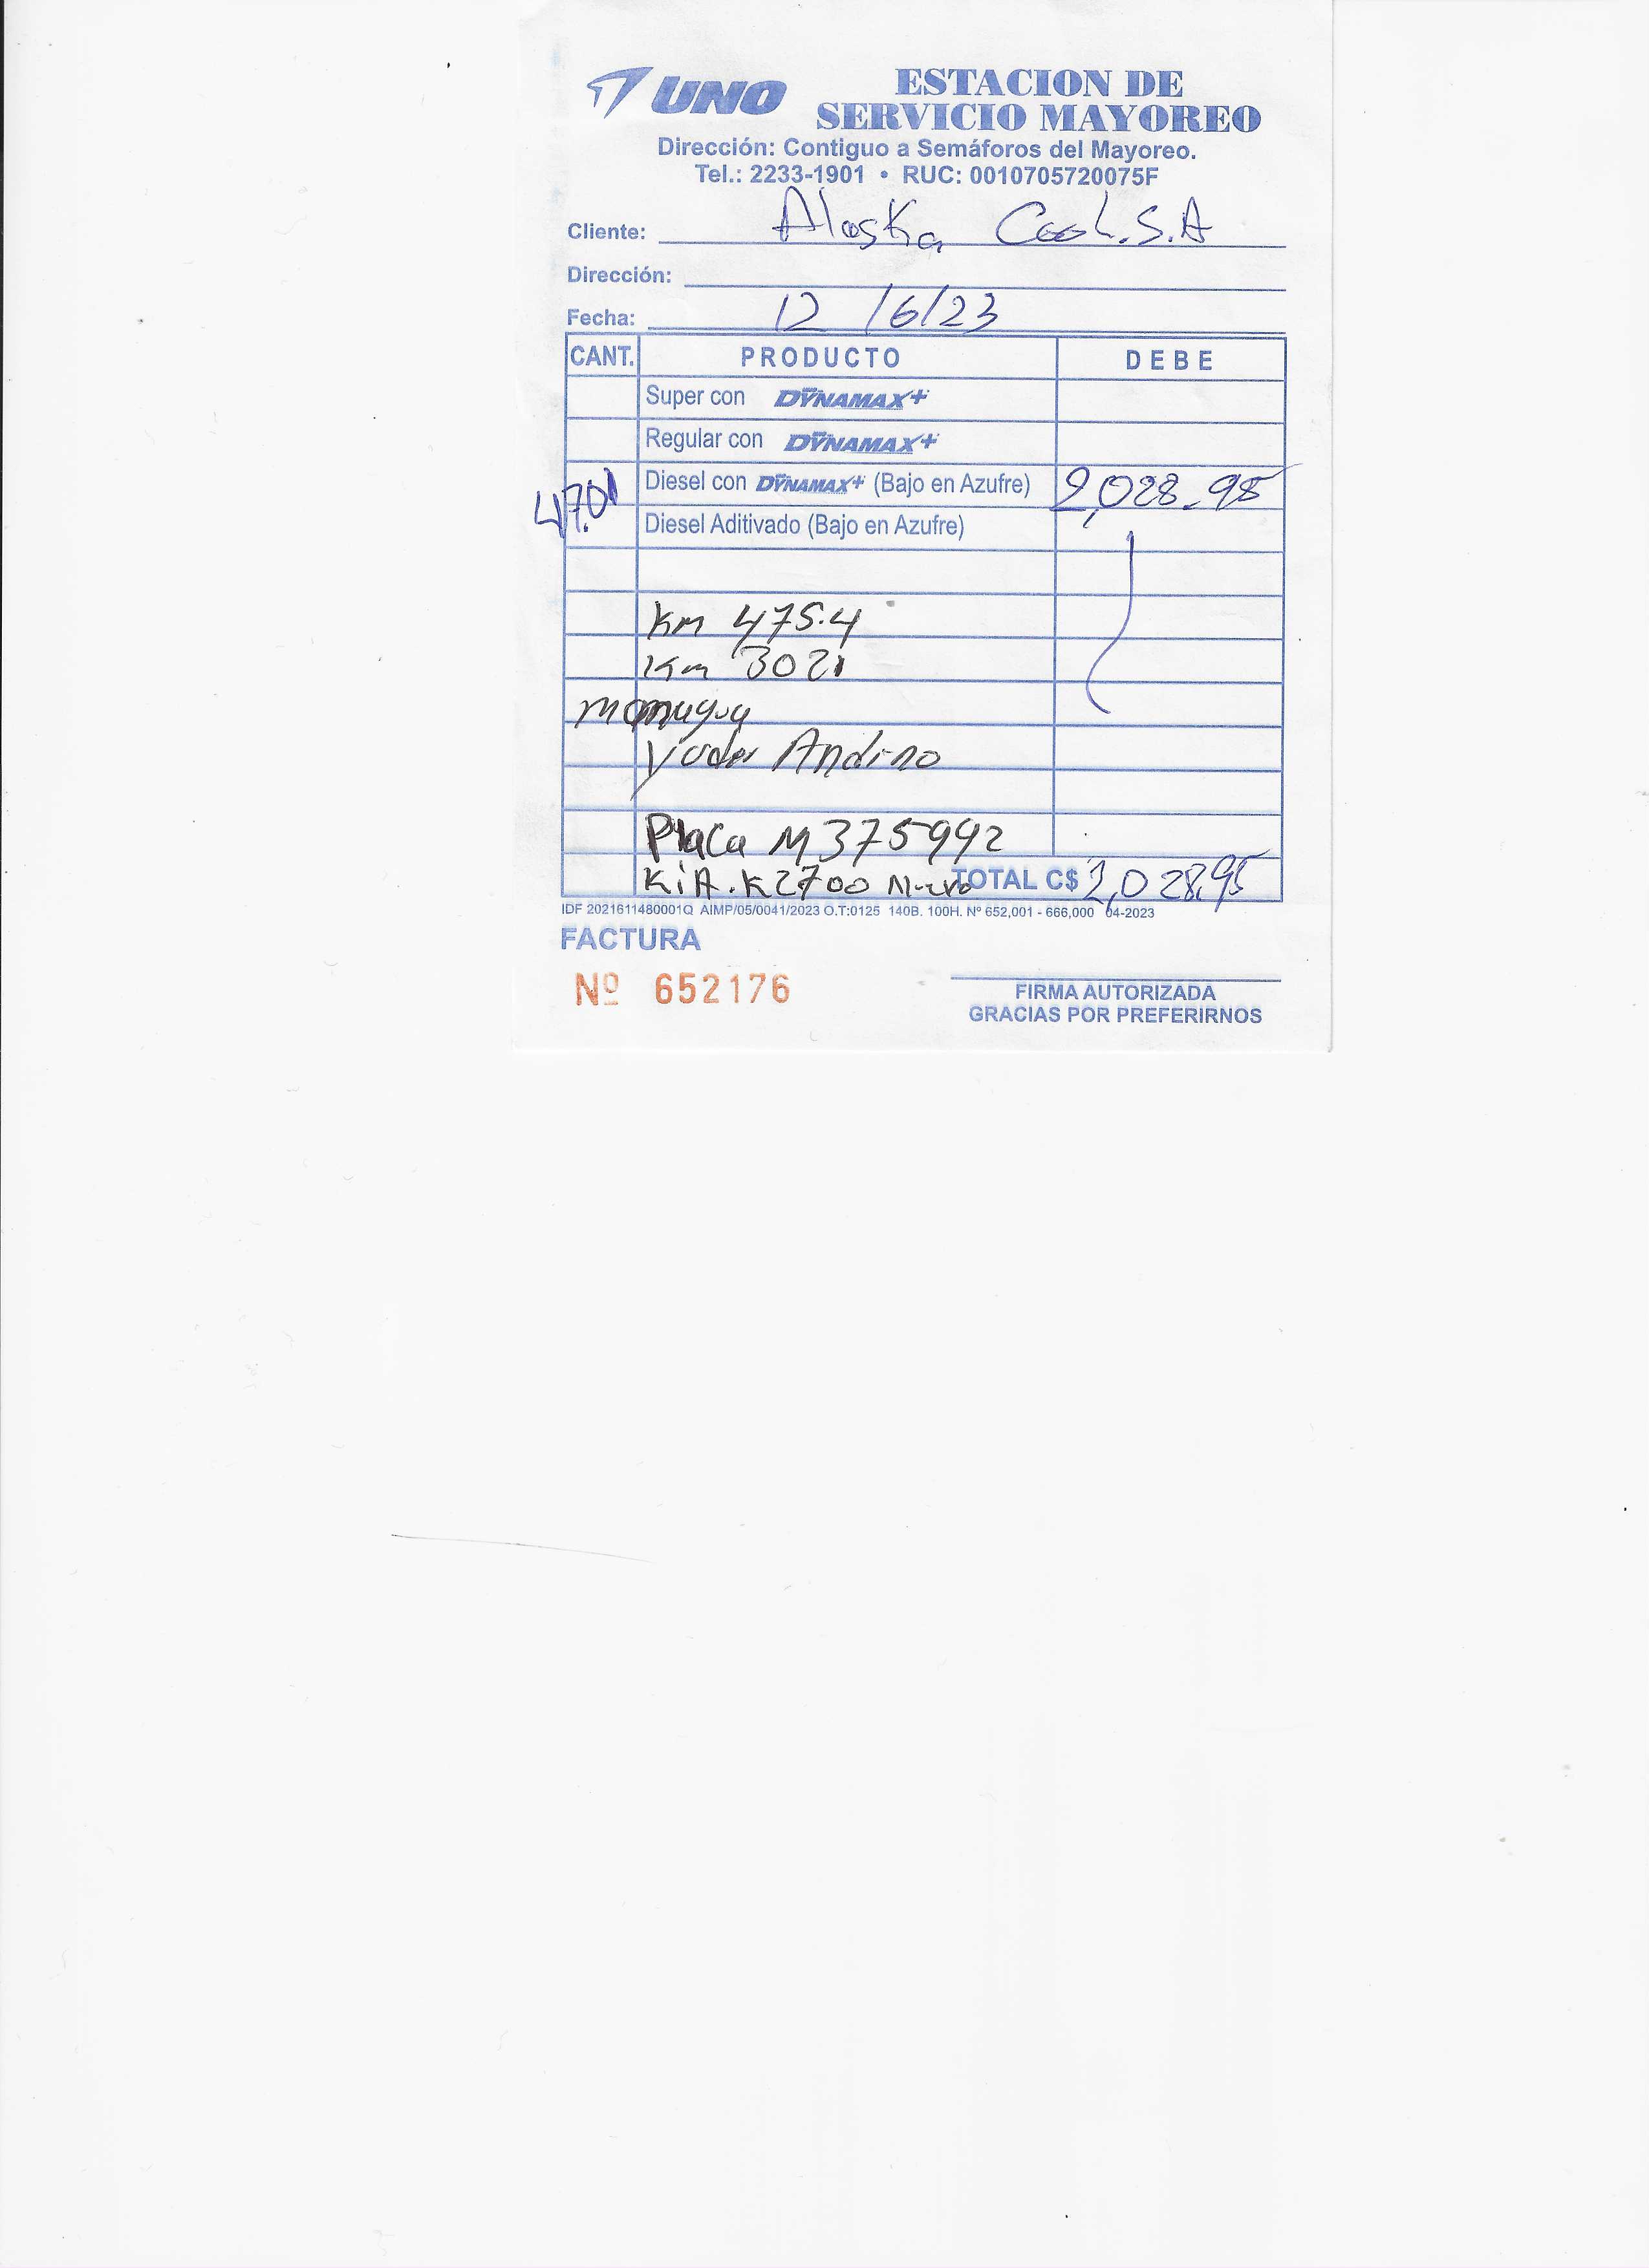 UNO ESTACION DE
SERVICIO MAYOREO
Dirección: Contiguo a Semáforos del Mayoreo.
Tel.: 2233-1901 • RUC: 0010705720075F
Cliente: Alaska Cool.S.A
Dirección:
Fecha: 12/6/23
CANT. PRODUCTO DEBE
Super con DYNAMAX+
Regular con DYNAMAX+
47.01 Diesel con DYNAMAX+ (Bajo en Azufre) 2,028.95
Diesel Aditivado (Bajo en Azufre)
Km 475.4
Km 3021
managua
Andino
Placa M375992
KiA.K2700 TOTAL C$ 2,028.95
IDF 2021611480001Q AIMP/05/0041/2023 O.T:0125 140B. 100H. Nº 652,001 - 666,000 04-2023
FACTURA
Nº 652176
FIRMA AUTORIZADA
GRACIAS POR PREFERIRNOS